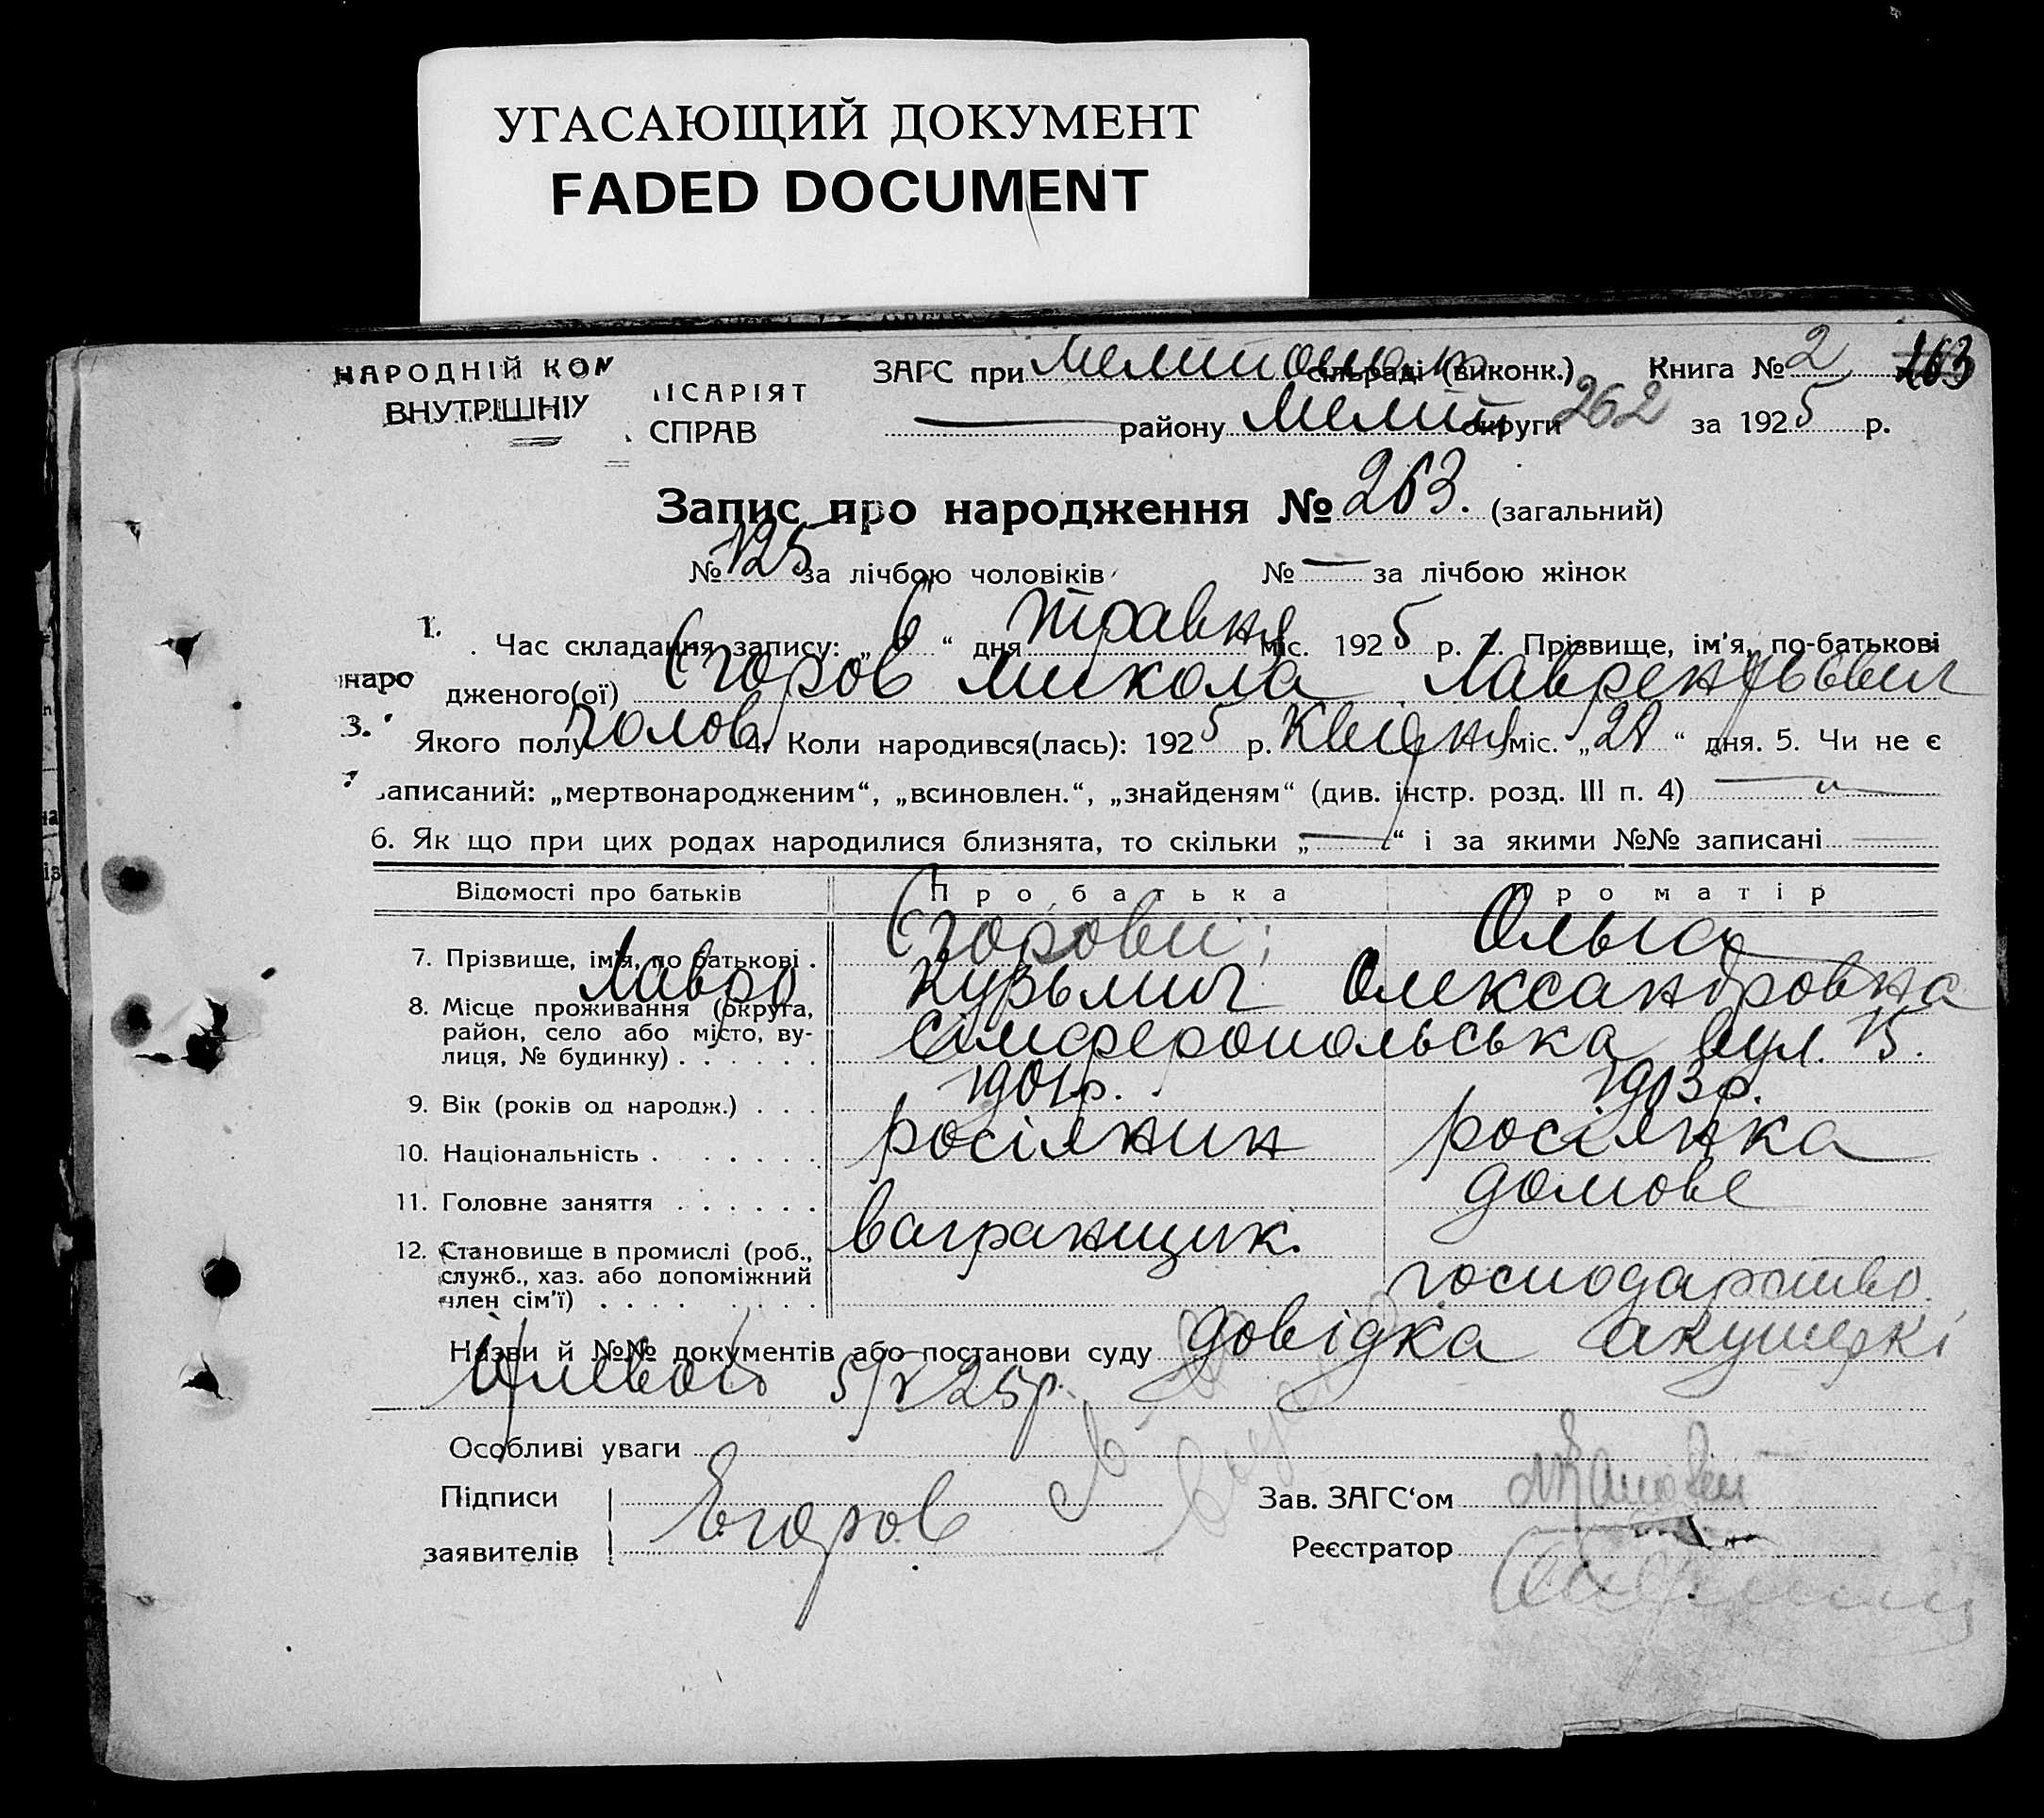 УГАСАЮЩИЙ ДОКУМЕНТ
FADED DOCUMENT
НАРОДНІЙ КОМІСАРІЯТ
ВНУТРІШНІХ СПРАВ
ЗАГС при сільраді (виконк.) Книга № 2 263
— району Меліт округи 262 за 1925 р.
Запис про народження № 263. (загальний)
№ 125 за лічбою чоловіків № — за лічбою жінок
1. Час складання запису: „6“ дня травня міс. 1925 р. 2. Прізвище, ім'я, по-батькові
народженого(ої) Єгоров Микола Лаврентьевич
3. Якого полу чолов. 4. Коли народився(лась): 1925 р. Квітня міс. „21“ дня. 5. Чи не є
записаний: „мертвонародженим“, „всиновлен.“, „знайденям“ (див. інстр. розд. III п. 4) —
6. Як що при цих родах народилися близнята, то скільки „—“ і за якими №№ записані —
Відомості про батьків Про батька Про матір
7. Прізвище, ім'я, по батькові . Єгорови; Ольга
Лавро Кузьмич Олександровна
8. Місце проживання (округа, район, село або місто, ву-
лиця, № будинку) . . . . . . Сімферопольська вул. 15.
9. Вік (років од народж.) . . . 1901р. 1903р.
10. Національність . . . . . . росіянин росіянка
11. Головне заняття . . . . . . вагранщик. домове
12. Становище в промислі (роб.,
служб., хаз. або допоміжний
член сім'ї) . . . . . . . . . господарство.
Назви й №№ документів або постанови суду довідка акушеркі
5/V 25р.
Особливі уваги
Підписи
заявителів Егоров
Зав. ЗАГС'ом
Реєстратор